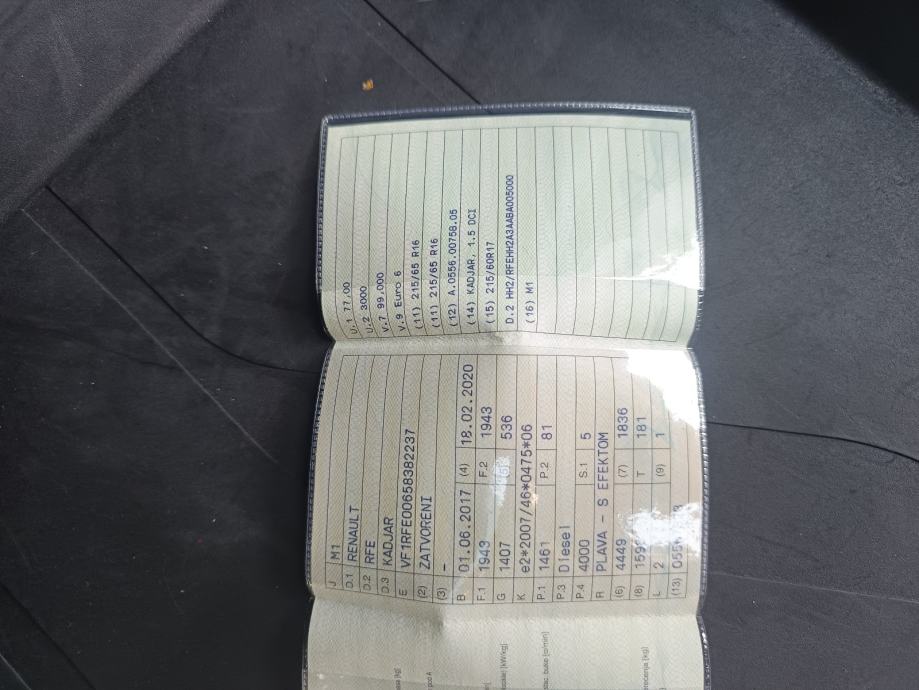 J M1
D.1 RENAULT
D.2 RFE
D.3 KADJAR
E VF1RFE00658382237
(2) ZATVORENI
(3) -
B 01.06.2017 (4) 18.02.2020
F.1 1943 F.2 1943
G 1407 536
K e2*2007/46*0475*06
P.1 1461 P.2 81
P.3 Diesel
P.4 4000 S.1 5
R PLAVA - S EFEKTOM
(6) 4449 (7) 1836
(8) T 181
L 2 (9) 1
(13)
U.1 77,00
U.2 3000
V.7 99,000
V.9 Euro 6
(11) 215/65 R16
(11) 215/65 R16
(12) A.0556.00758.05
(14) KADJAR, 1.5 DCI
(15) 215/60R17
D.2 HH2/RFEHH2A3AABA005000
(16) M1